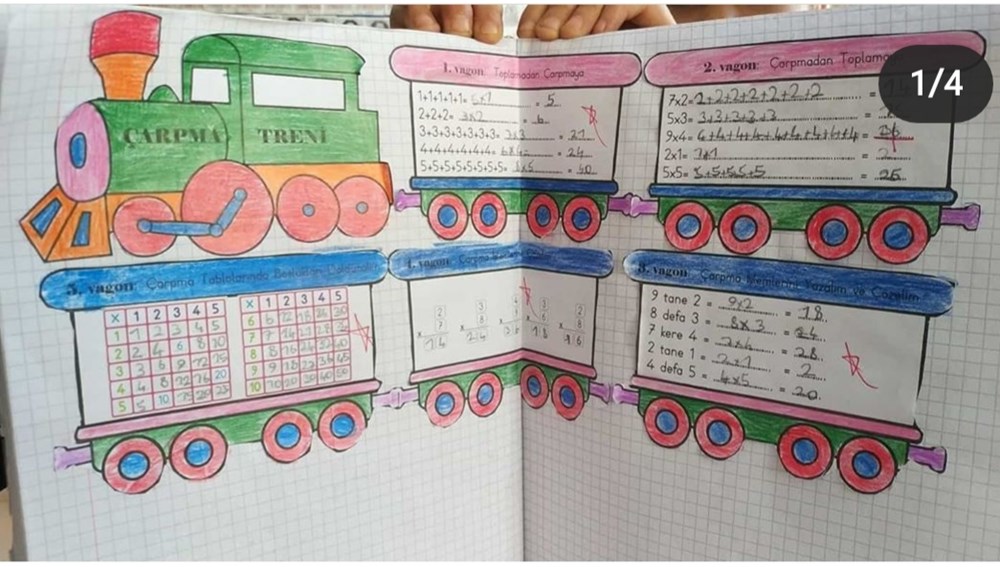 ÇARPMA TRENİ
1. vagon: Toplamadan Çarpmaya
1+1+1+1+1= 5x1 = 5
2+2+2= 3x2 = 6
3+3+3+3+3+3+3= 7x3 = 21
4+4+4+4+4+4= 6x4 = 24
5+5+5+5+5+5+5+5= 8x5 = 40
2. vagon: Çarpmadan Toplama
7x2= 2+2+2+2+2+2+2 =
5x3= 3+3+3+3+3 =
9x4= 4+4+4+4+4+4+4+4+4 = 36
2x1= 1+1 = 2
5x5= 5+5+5+5+5 = 25
1/4
5. vagon: Çarpma Tablolarında
x 1 2 3 4 5
1 1 2 3 4 5
2 2 4 6 8 10
3 3 6 9 12 15
4 4 8 12 16 20
5 5 10 15 20 25
x 1 2 3 4 5
6 6 12 18 24 30
7 7 14 21 28
8 8 16 24 32 40
9 9 18 27 36 45
10 10 20 30 40 50
4. vagon: Çarpma
2 3 3 2
x 7 x 8 x 6 x 8
14 24 18 16
3. vagon: Çarpma İşlemlerini Yazalım ve Çözelim
9 tane 2 = 9x2 = 18
8 defa 3 = 8x3 = 24
7 kere 4 = 7x4 = 28
2 tane 1 = 2x1 = 2
4 defa 5 = 4x5 = 20